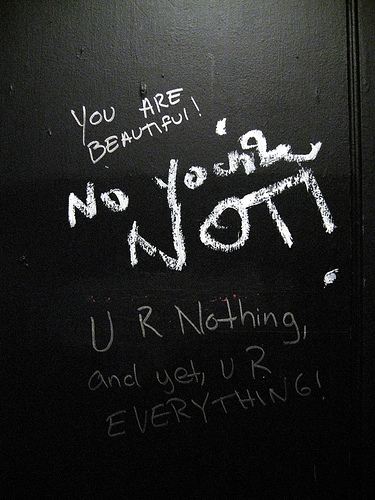 YOU ARE
BEAUTIFUL!
No You're
NOT!
U R Nothing,
and yet, U R
EVERYTHING!